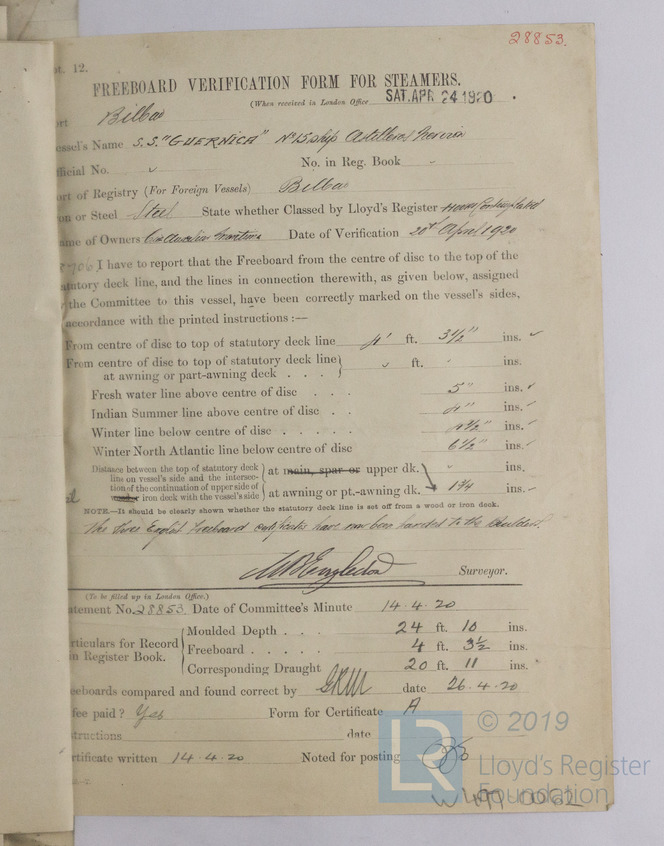 28853.
pt. 12.
FREEBOARD VERIFICATION FORM FOR STEAMERS.
(When received in London Office SAT. APR 24 1920
ort Bilbao
essel's Name S.S. "GUERNICA" No 15 ship Astilleros Nervion
fficial No. No. in Reg. Book
ort of Registry (For Foreign Vessels) Bilbao
on or Steel Steel State whether Classed by Lloyd's Register
ame of Owners Date of Verification 20th April 1920
I have to report that the Freeboard from the centre of disc to the top of the
atutory deck line, and the lines in connection therewith, as given below, assigned
the Committee to this vessel, have been correctly marked on the vessel's sides,
accordance with the printed instructions :—
From centre of disc to top of statutory deck line 4' ft. 3½" ins.
From centre of disc to top of statutory deck line
at awning or part-awning deck . . . ft. " ins.
Fresh water line above centre of disc . . . 5" ins.
Indian Summer line above centre of disc . . 4" ins.
Winter line below centre of disc . . . . . 4½" ins.
Winter North Atlantic line below centre of disc 6½" ins.
Distance between the top of statutory deck
line on vessel's side and the intersec-
tion of the continuation of upper side of
iron deck with the vessel's side
at main, spar or upper dk. " ins.
at awning or pt.-awning dk. 1¾ ins.
NOTE.—It should be clearly shown whether the statutory deck line is set off from a wood or iron deck.
The three English Freeboard certificates have now been handed to the Builders.
Surveyor.
(To be filled up in London Office.)
atement No. 28853 Date of Committee's Minute 14.4.20
rticulars for Record
in Register Book.
Moulded Depth . . . 24 ft. 10 ins.
Freeboard . . . . . 4 ft. 3½ ins.
Corresponding Draught 20 ft. 11 ins.
eeboards compared and found correct by date 26.4.20
fee paid? Yes Form for Certificate A
structions date
rtificate written 14.4.20 Noted for posting
W499-0062
LR
© 2019
Lloyd's Register
Foundation